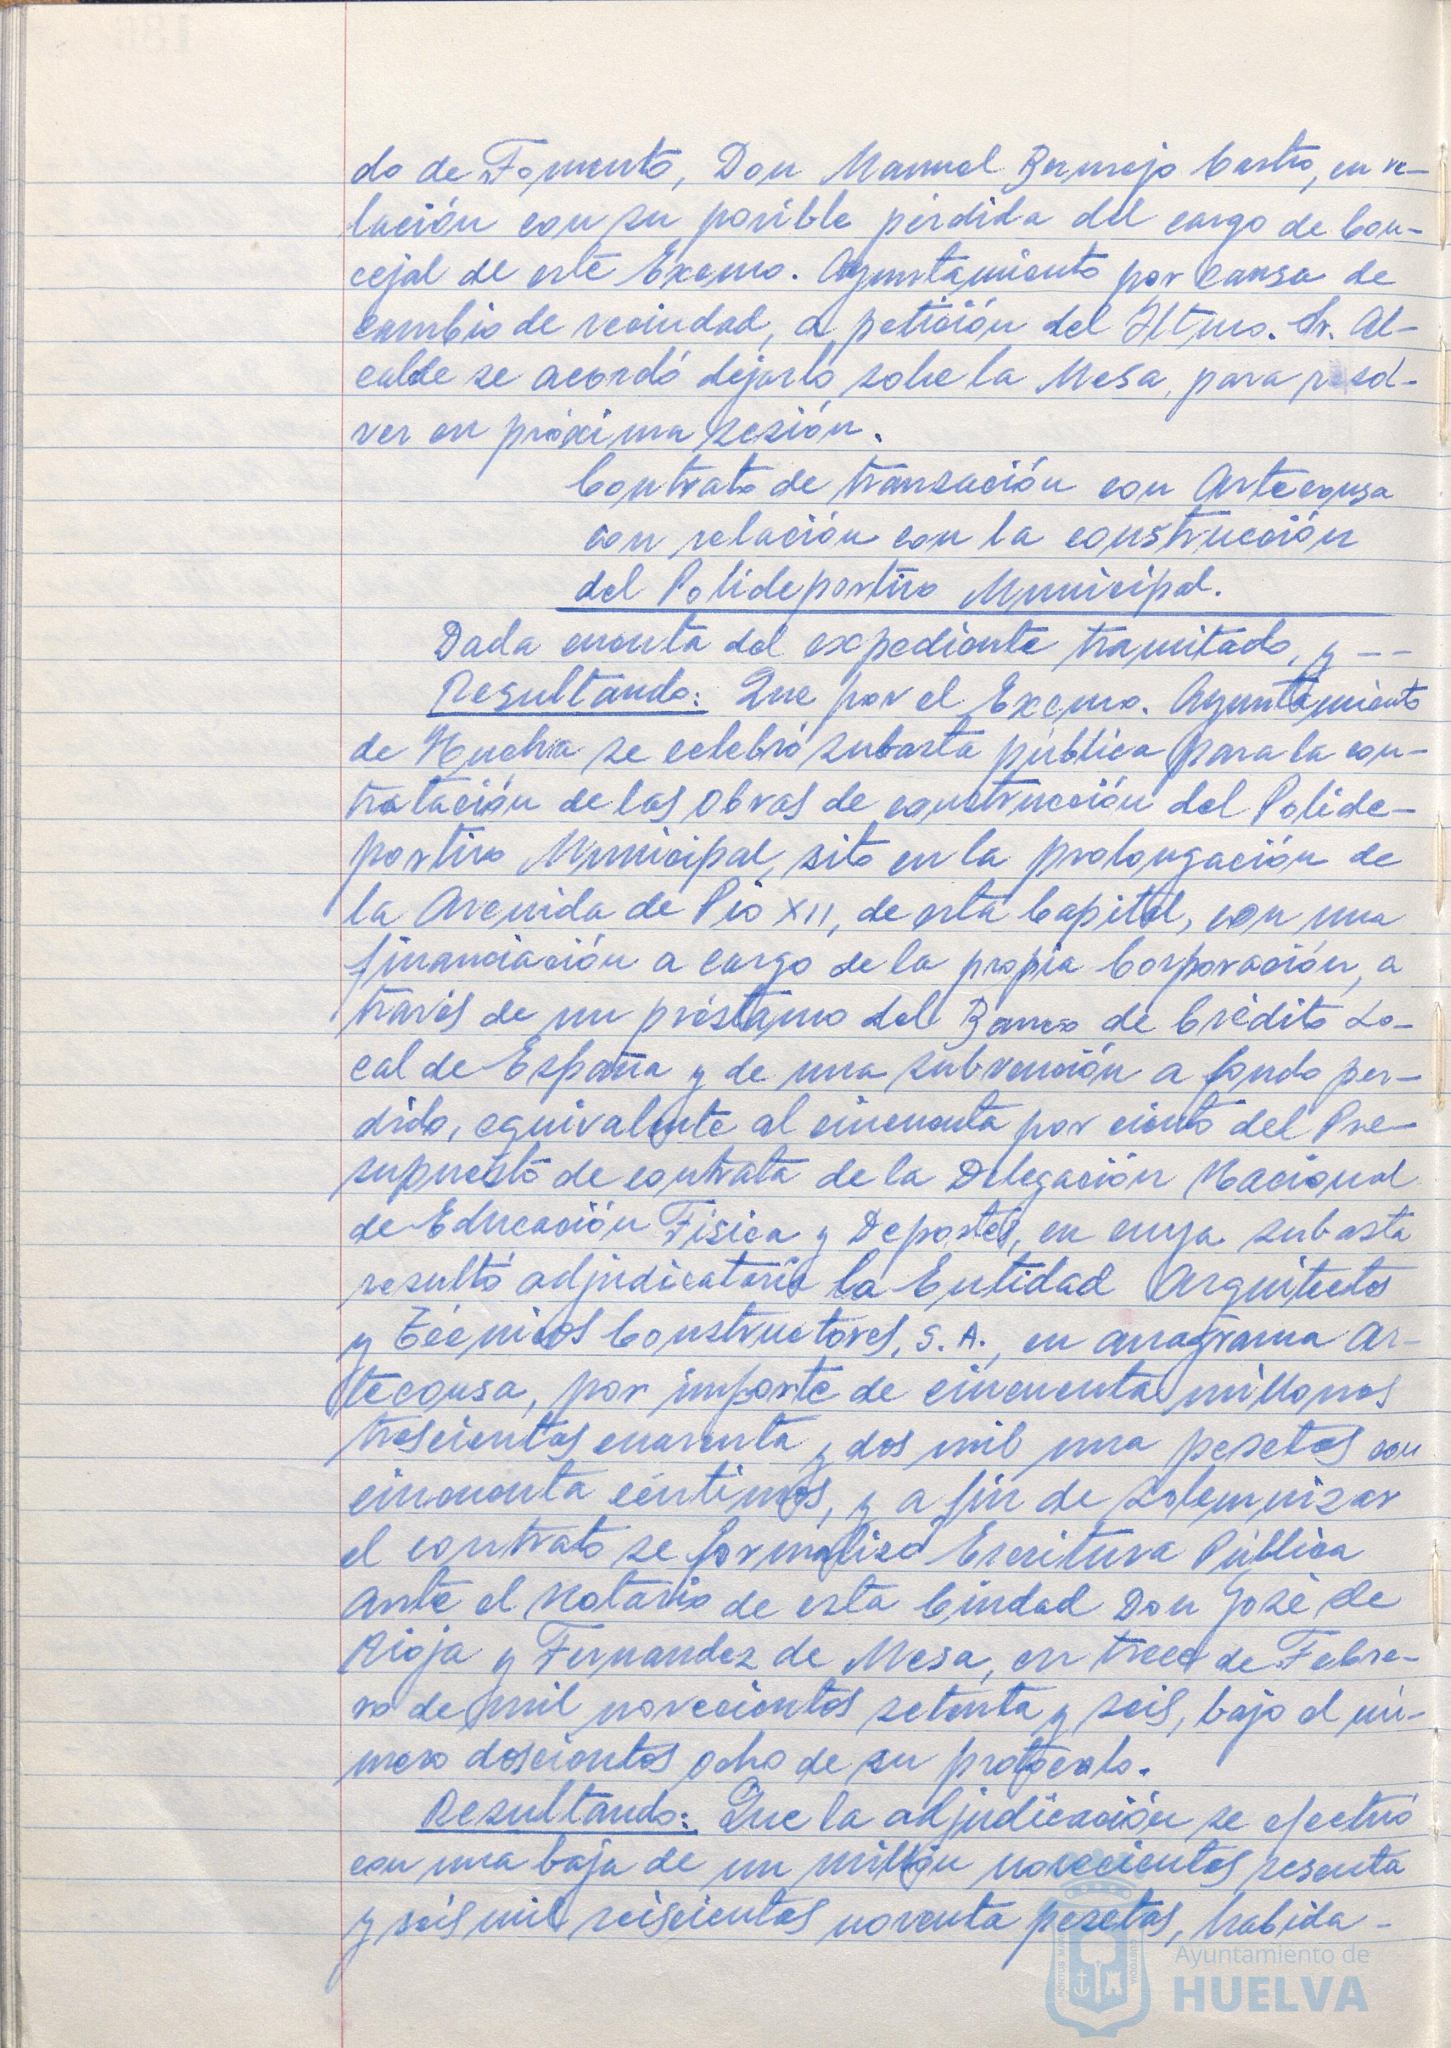 do de Fomento, Don Manuel Bermejo Castro, en re-
lación con su posible pérdida del cargo de Con-
cejal de este Excmo. Ayuntamiento por causa de
cambio de vecindad, a petición del Iltmo. Sr. Al-
calde se acordó dejarlo sobre la Mesa, para resol-
ver en próxima sesión.
Contrato de transación con Artecousa
con relación con la construcción
del Polideportivo Municipal.
Dada cuenta del expediente tramitado, y ---
Resultando: Que por el Excmo. Ayuntamiento
de Huelva se celebró subasta pública para la con-
tratación de las obras de construcción del Polide-
portivo Municipal, sito en la prolongación de
la Avenida de Pio XII, de esta Capital, con una
financiación a cargo de la propia Corporación, a
través de un préstamo del Banco de Crédito Lo-
cal de España y de una subvención a fondo per-
dido, equivalente al cincuenta por ciento del Pre-
supuesto de contrata de la Delegación Nacional
de Educación Física y Deportes, en cuya subasta
resultó adjudicataria la Entidad Arquitectos
y Técnicos Constructores, S.A., en anagrama Ar-
tecousa, por importe de cincuenta millones
trescientas cuarenta y dos mil una pesetas con
cincuenta céntimos, y a fin de solemnizar
el contrato se formalizó Escritura Pública
ante el Notario de esta Ciudad Don José de
Rioja y Fernandez de Mesa, en trece de Febre-
ro de mil novecientos setenta y seis, bajo el nú-
mero doscientos ocho de su protocolo.
Resultando: Que la adjudicación se efectuó
con una baja de un millón novecientas sesenta
y seis mil seiscientas noventa pesetas, habida-
Ayuntamiento de
HUELVA